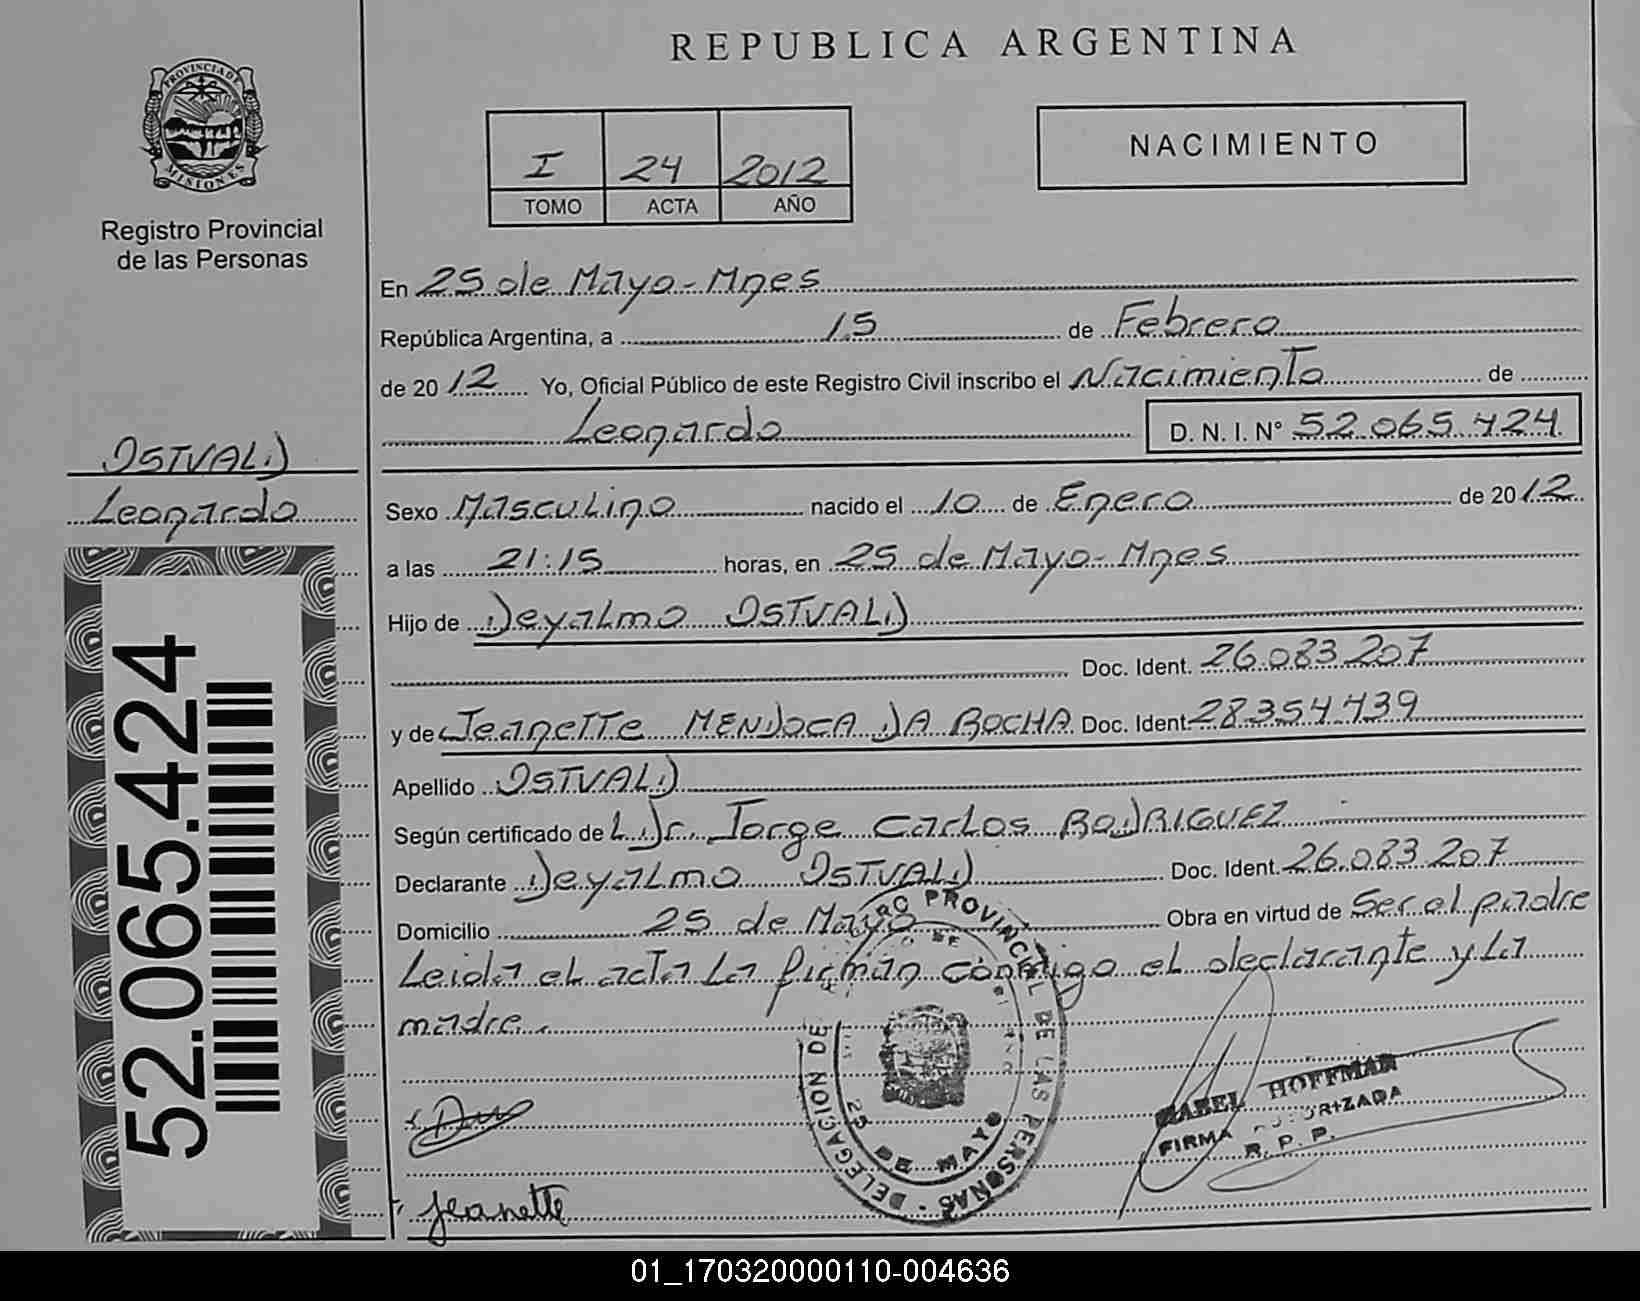 REPUBLICA ARGENTINA
PROVINCIA DE
MISIONES
Registro Provincial
de las Personas
I 24 2012
TOMO ACTA AÑO
NACIMIENTO
En 25 de Mayo - Mnes
República Argentina, a 15 de Febrero
de 2012 Yo, Oficial Público de este Registro Civil inscribo el Nacimiento de
Leonardo D. N. I. N° 52.065.424
OSTVALD
Leonardo
Sexo Masculino nacido el 10 de Enero de 2012
a las 21:15 horas, en 25 de Mayo - Mnes
Hijo de Deyalmo OSTVALD
Doc. Ident. 26.083.207
y de Jeanette MENDOCA DA ROCHA Doc. Ident. 28.354.439
Apellido OSTVALD
Según certificado de L Dr. Jorge Carlos RODRIGUEZ
Declarante Deyalmo OSTVALD Doc. Ident. 26.083.207
Domicilio 25 de Mayo Obra en virtud de Ser el padre
Leida el acta La firman conmigo el declarante y La
madre.
52.065.424
PROVINCIAL DE LAS PERSONAS - DELEGACION DE
25 DE MAYO
HOFFMAN
FIRMA
R. P. P.
Jeanette
01_170320000110-004636